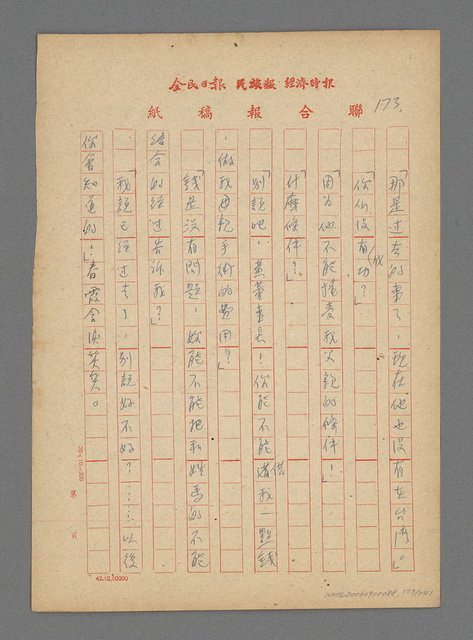 全民日報 民族報 經濟時報
聯合報稿紙
173.
「那是过去的事了，現在他也没有在台湾。」
「你们没有成功？」
「因为他不能接受我父親的條件！」
「什麼條件？」
「別說吧，黃董事長！你能不能借我一點錢
，做我母親手術的費用？」
「錢是没有問題，妳能不能把和姓馬的不能
結合的经过告訴我？」
「我說已经过去了，別說好不好？……以後
你會知道的！」春霞含淚笑笑。
20×10=200
第 頁
42.12.10000